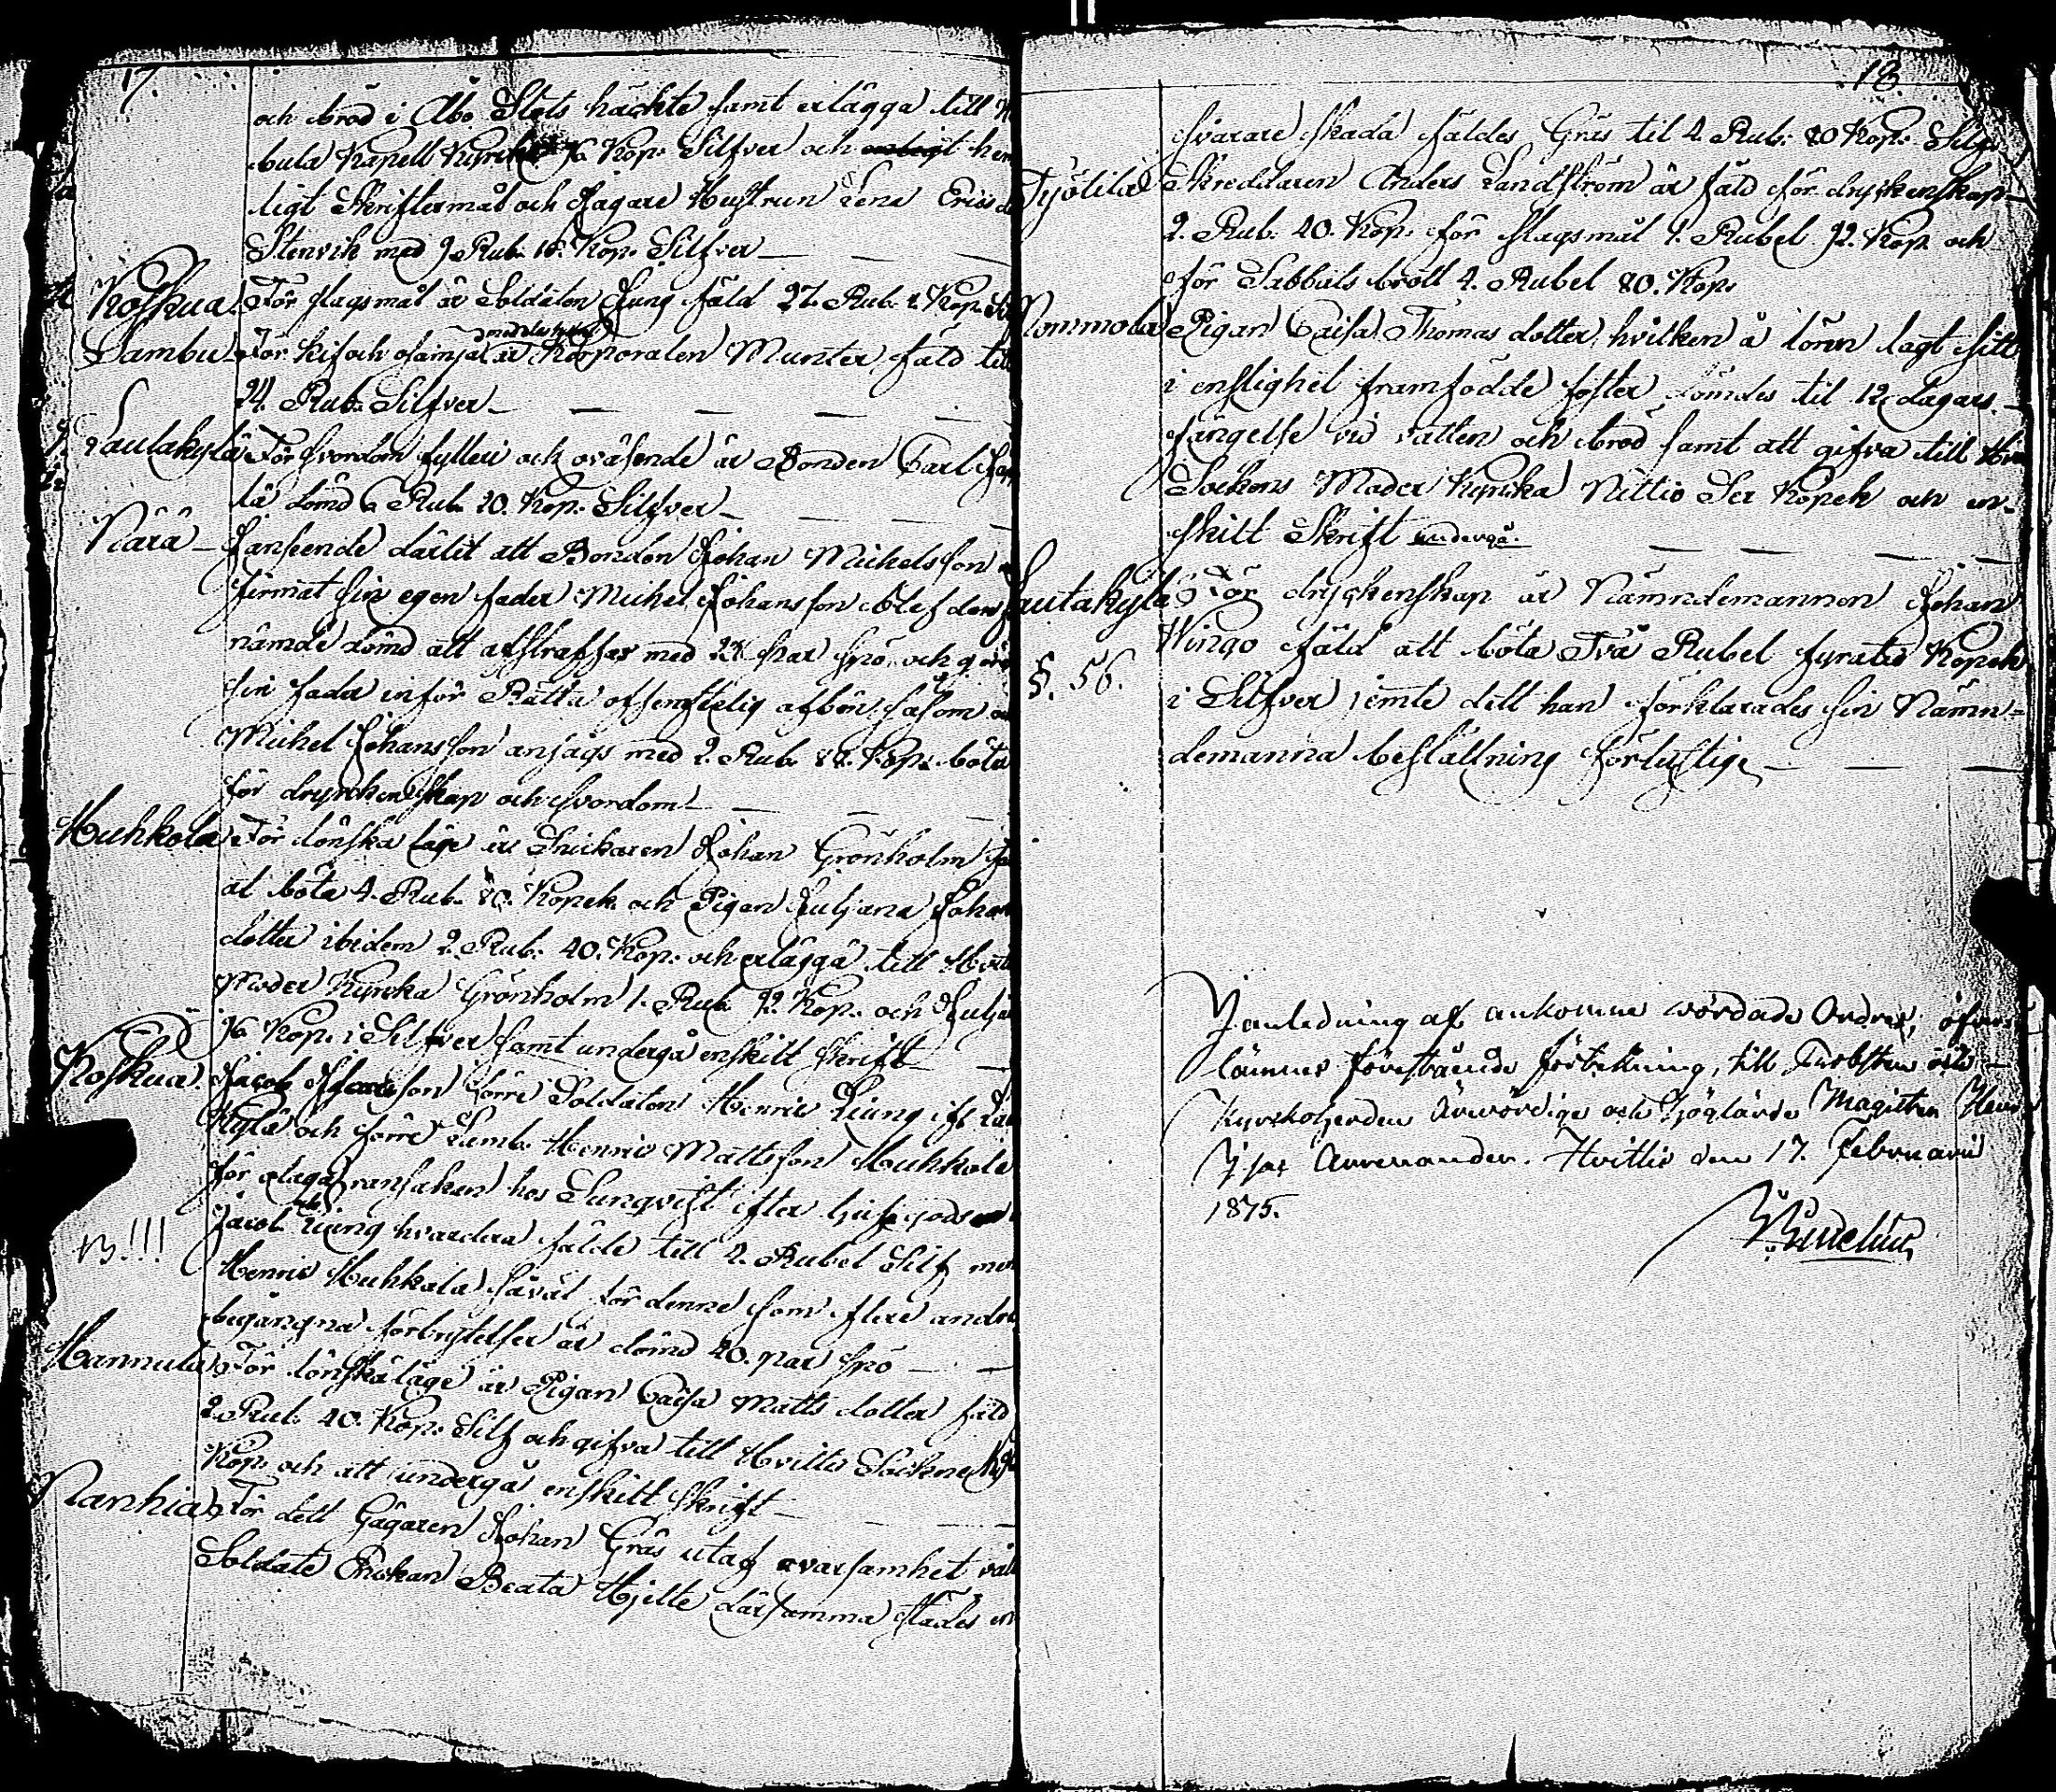 17.
och bröd i Åbo Slots häckte samt erlägga till
bula Kapell Kyrcka 96 Kop. Silfver och hem
ligt Skriftermål och Hustrun Lena Erics
Stenvik med 9 Rub. Kop. Silfver
Koskua. För slagsmål är Soldaten Liung fäld 27. Rub. Kop.
Sambu För kif och osämja är Korporalen Munter fäld till
24. Rub. Silfver
Lautakylä För svordom fylleri och oväsende är Bonden Carl
lä dömd 6 Rub. 20. Kop. Silfver
Närä Janseende därtil att Bonden Johan Michelsson
firmat sin egen fader Michel Johansson blef den
nämde dömd att afstraffas med 24 par spö och göra
sin fader inför Rätta offentelig afbön såsom
Michel Johansson ansågs med 2. Rub. 88. Kop. böta
för dryckenskap och svordom
Huhkola För lönska läge är Snickaren Johan Grönholm
at böta 4. Rub. 80. Kopek och Pigan Juliana Johan
dotter ibidem 2. Rub. 40. Kop. och erlägga till Hvitti
Moder Kyrcka Grönholm 1. Rub. 92. Kop. och Julia
96 Kop. i Silfver samt undergå enskilt skrift
Koskua. Jacob förre Soldaten Henric Liung
Kylä och förre Lumb. Henric Mattsson Huhkola
för olaga ransakan hos Sunqvist efter tjufgods
Jacob och Liung hvardera fälde till 2. Rubel Silf
NB!!! Henric Huhkala såväl för denne som flere andre
begångna förbrytelser är dömd 40. par spö
Hannula För lönskaläge är Pigan Caisa Matts dotter fäld
2. Rub. 40. Kop. Silf och gifva till Hvittis Sockne
Kop. och att undergå enskilt skrift
Ranhia För dett Gågaren Johan Gräs utaf ovarsamhet
Soldate Enckan Beata Hjelte därsamma städes
18.
svarare skada fäldes Gräs til 4. Rub. 80 Kop. Silfv
Työlilä Skreddaren Anders Sandström är fäld för dryckenskap
2. Rub. 40. Kop. för slagsmål 1. Rubel 92. Kop. och
för Sabbats brott 4. Rubel 80. Kop.
Nommola Pigan Caisa Thomas dotter, hvilken å lönn lagt sitt
i enslighet framfödde foster dömdes til 12 dagars
fängelse vid vatten och bröd samt att gifva till
Sockens Moder Kyrcka Nittio Sex Kopek och en-
skilt Skrift undergå.
Lautakylä För dryckenskap är Nämndemannen Johan
§. 56. Wingo fäld att böta Två Rubel fyratio Kopek
i Silfver jemte dett han förklarades sin Nämn-
demanna beställning förlustig
I anledning af ankomne wördade Ordres, öfver
lämnas förestående förtekning, till Probsten och
Kyrkoherden Ärewördige och Höglärde Magistern
Avvenander. Hvittis den 17. Februarii
1815.